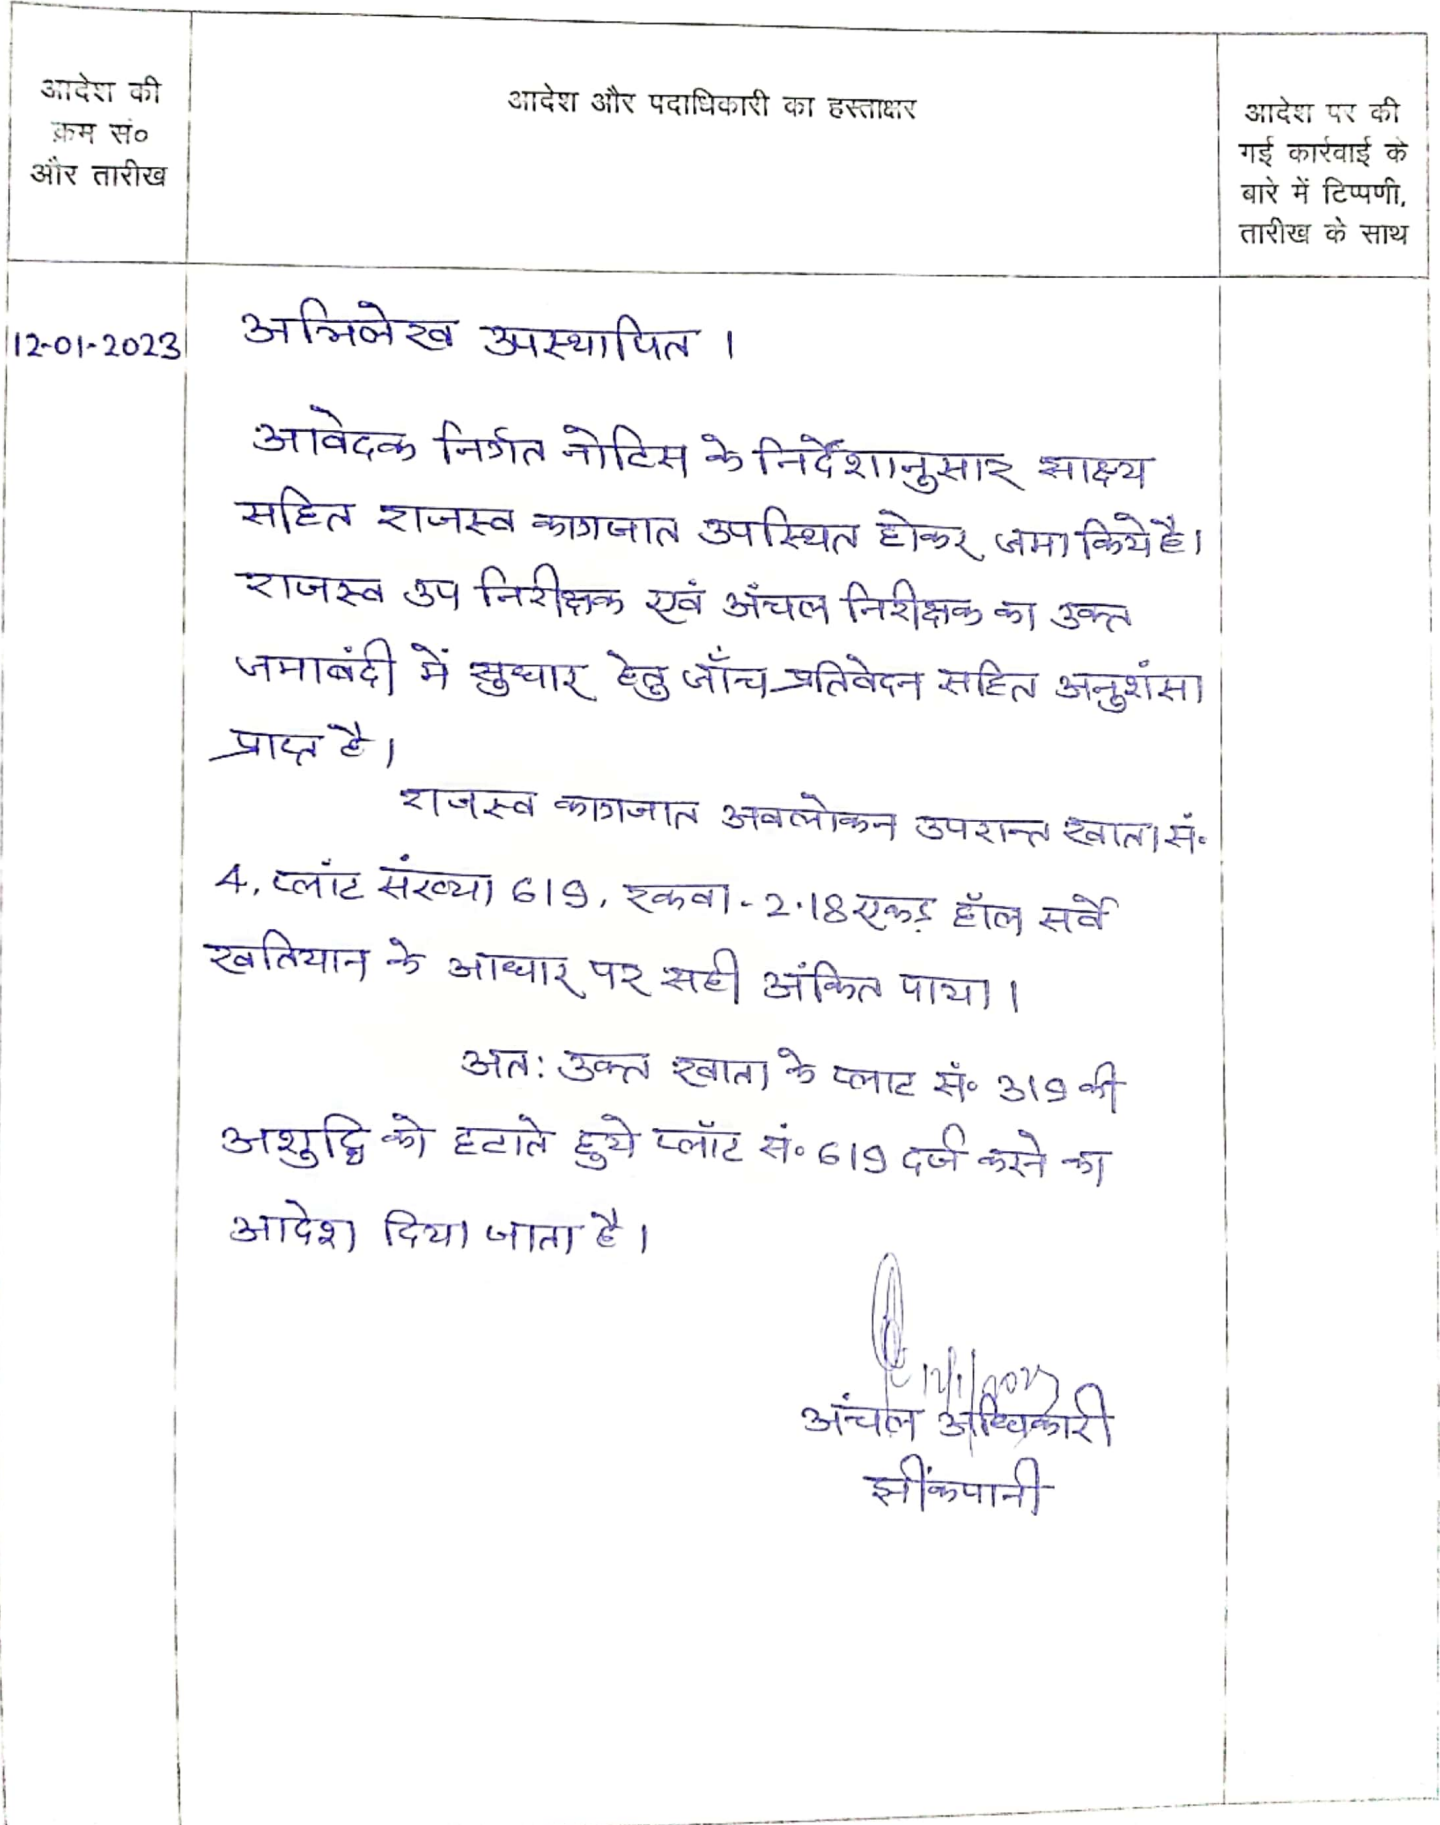 आदेश की
क्रम सं०
और तारीख
आदेश और पदाधिकारी का हस्ताक्षर
आदेश पर की
गई कार्रवाई के
बारे में टिप्पणी,
तारीख के साथ
12-01-2023
अभिलेख उपस्थापित ।
आवेदक निर्गत नोटिस के निर्देशानुसार साक्ष्य
सहित राजस्व कागजात उपस्थित होकर जमा किये है।
राजस्व उप निरीक्षक एवं अँचल निरीक्षक का उक्त
जमाबंदी में सुधार हेतु जाँच प्रतिवेदन सहित अनुशंसा
प्राप्त है।
राजस्व कागजात अवलोकन उपरान्त खाता सं॰
4, प्लॉट संख्या 619, रकवा - 2.18 एकड़ हॉल सर्वे
खतियान के आधार पर सही अंकित पाया ।
अत: उक्त खाता के प्लाट सं॰ 319 की
अशुद्धि को हटाते हुये प्लॉट सं॰ 619 दर्ज करने का
आदेश दिया जाता है।
12/1/2023
अंचल अधिकारी
झींकपानी